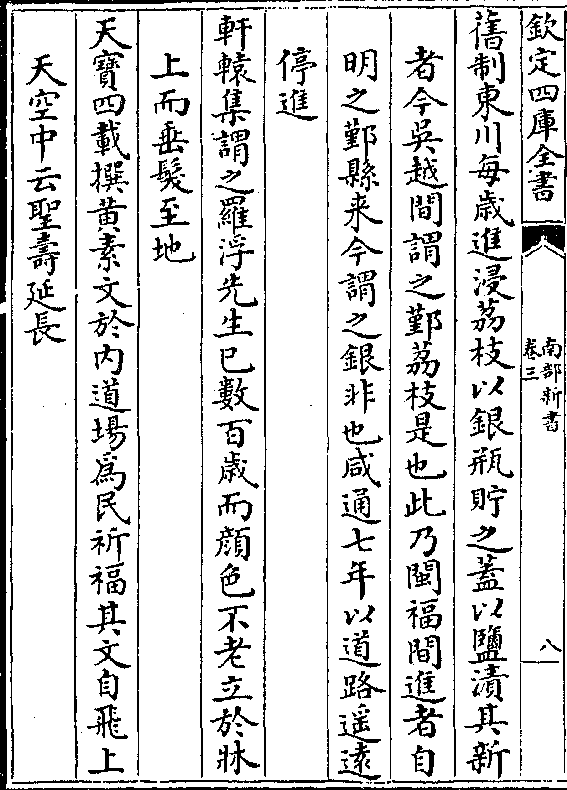 欽定四庫全書
南部新書
卷三
八
舊制東川每歲進浸荔枝以銀瓶貯之蓋以鹽漬其新
者今吳越間謂之鄞荔枝是也此乃閩福間進者自
明之鄞縣来今謂之銀非也咸通七年以道路遥逺
停進
軒轅集謂之羅浮先生已數百歲而顔色不老立於牀
上而垂髮至地
天寳四載撰黄素文於内道場為民祈福其文自飛上
天空中云聖壽延長